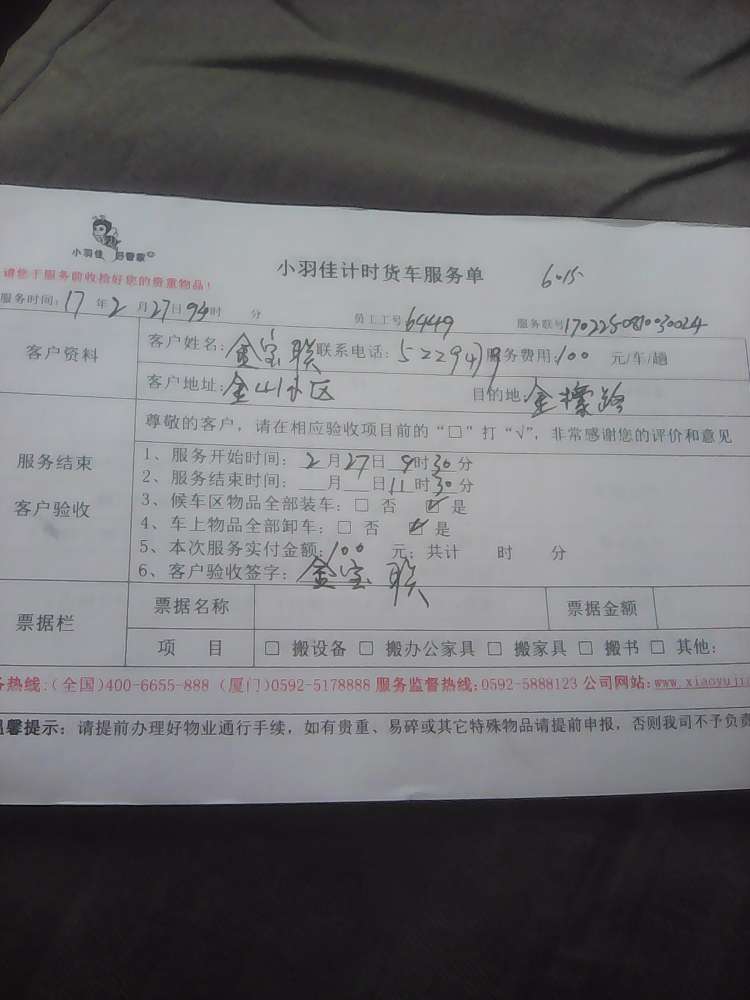 小羽佳 好管家
小羽佳计时货车服务单
6-15
请您于服务前收捡好您的贵重物品！
服务时间：17年2月27日 时 分 员工工号6449 服务联号
客户资料
客户姓名：金宝联 联系电话： 服务费用：100 元/车/趟
客户地址：金山小区 目的地：金 路
服务结束
客户验收
尊敬的客户，请在相应验收项目前的“□”打“√”，非常感谢您的评价和意见
1、服务开始时间：2月27日9时30分
2、服务结束时间：___月___日11时30分
3、候车区物品全部装车：□ 否 ☑ 是
4、车上物品全部卸车：□ 否 ☑ 是
5、本次服务实付金额：100 元；共计 时 分
6、客户验收签字：金宝联
票据栏
票据名称 票据金额
项 目 □ 搬设备 □ 搬办公家具 □ 搬家具 □ 搬书 □ 其他：
务热线：(全国)400-6655-888 (厦门)0592-5178888 服务监督热线：0592-5888123 公司网站：www.xiaoyuji
温馨提示：请提前办理好物业通行手续，如有贵重、易碎或其它特殊物品请提前申报，否则我司不予负责